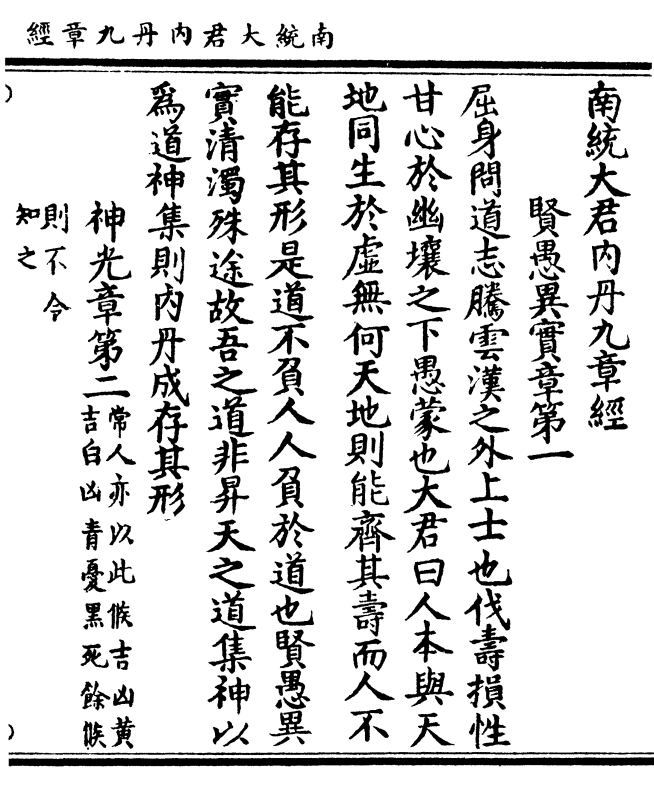 南統大君内丹九章經
南統大君内丹九章經
賢愚異實章第一
屈身問道志騰雲漢之外上士也伐壽損性
甘心於幽壤之下愚蒙也大君曰人本與天
地同生於虛無何天地則能齊其壽而人不
能存其形是道不負人人負於道也賢愚異
實清濁殊途故吾之道非昇天之道集神以
爲道神集則内丹成存其形
神光章第二常人亦以此候吉凶黄
吉白凶青憂黑死餘候
則不令
知之